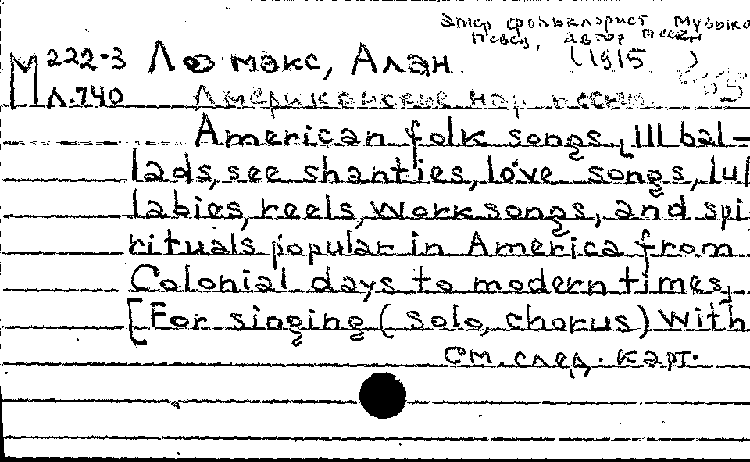 Амер фольклорист, музыко
певец, автор песен
М 222-3 Ломакс, Алан (1915 )
Л.740 Американские нар. песни
American folk songs, 111 bal-
lads, see shanties, love songs, lul
labies, reels, work songs, and spi
rituals popular in America from
Colonial days to modern times,
[For singing (solo, chorus) with
См. след. карт.